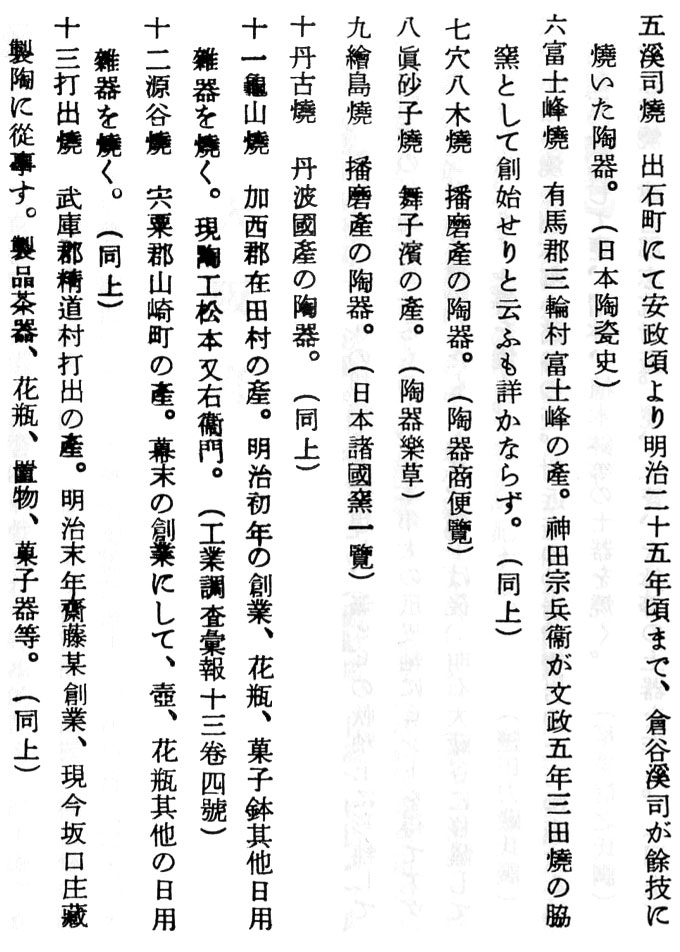 五溪司燒　出石町にて安政頃より明治二十五年頃まで、倉谷溪司が餘技に
燒いた陶器。（日本陶瓷史）
六富士峰燒　有馬郡三輪村富士峰の產。神田宗兵衞が文政五年三田燒の脇
窯として創始せりと云ふも詳かならず。（同上）
七穴八木燒　播磨產の陶器。（陶器商便覽）
八眞砂子燒　舞子濱の產。（陶器樂草）
九繪島燒　播磨產の陶器。（日本諸國窯一覽）
十丹古燒　丹波國產の陶器。（同上）
十一龜山燒　加西郡在田村の產。明治初年の創業、花瓶、菓子鉢其他日用
雜器を燒く。現陶工松本又右衞門。（工業調査彙報十三卷四號）
十二源谷燒　宍粟郡山崎町の產。幕末の創業にして、壺、花瓶其他の日用
雜器を燒く。（同上）
十三打出燒　武庫郡精道村打出の產。明治末年齋藤某創業、現今坂口庄藏
製陶に從事す。製品茶器、花瓶、置物、菓子器等。（同上）